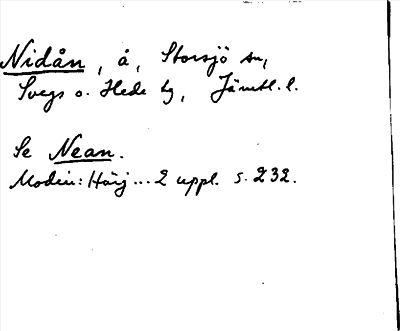 Nidån, å, Storsjö sn,
Svegs o. Hede tg, Jämtl. l.
Se Nean.
Modin: Härj... 2 uppl. s. 232.